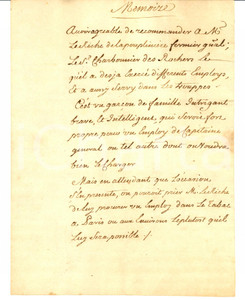 Memoire
Aurois agreable de recommander a Mr
Le Riche de la poupliniere fermier gñal;
Le Sr. Charbonnier des Rochers le
quel a desja Exercé differents Employs
Et a aussy Servy dans les trouppes
C'est un garçon de famille Intrigant
brave, & Intelligent, qui Seroit fort
propre pour un Employ de Capitaine
general ou tel autre dont on Voudra
bien le Charger
Mais en attendant que L'occasion
S'en presente, on pouroit prier M. Le Riche
de luy procurer un Employ dans le Tabac
a Paris ou aux Environs le plutost qu'il
Luy Sera possible